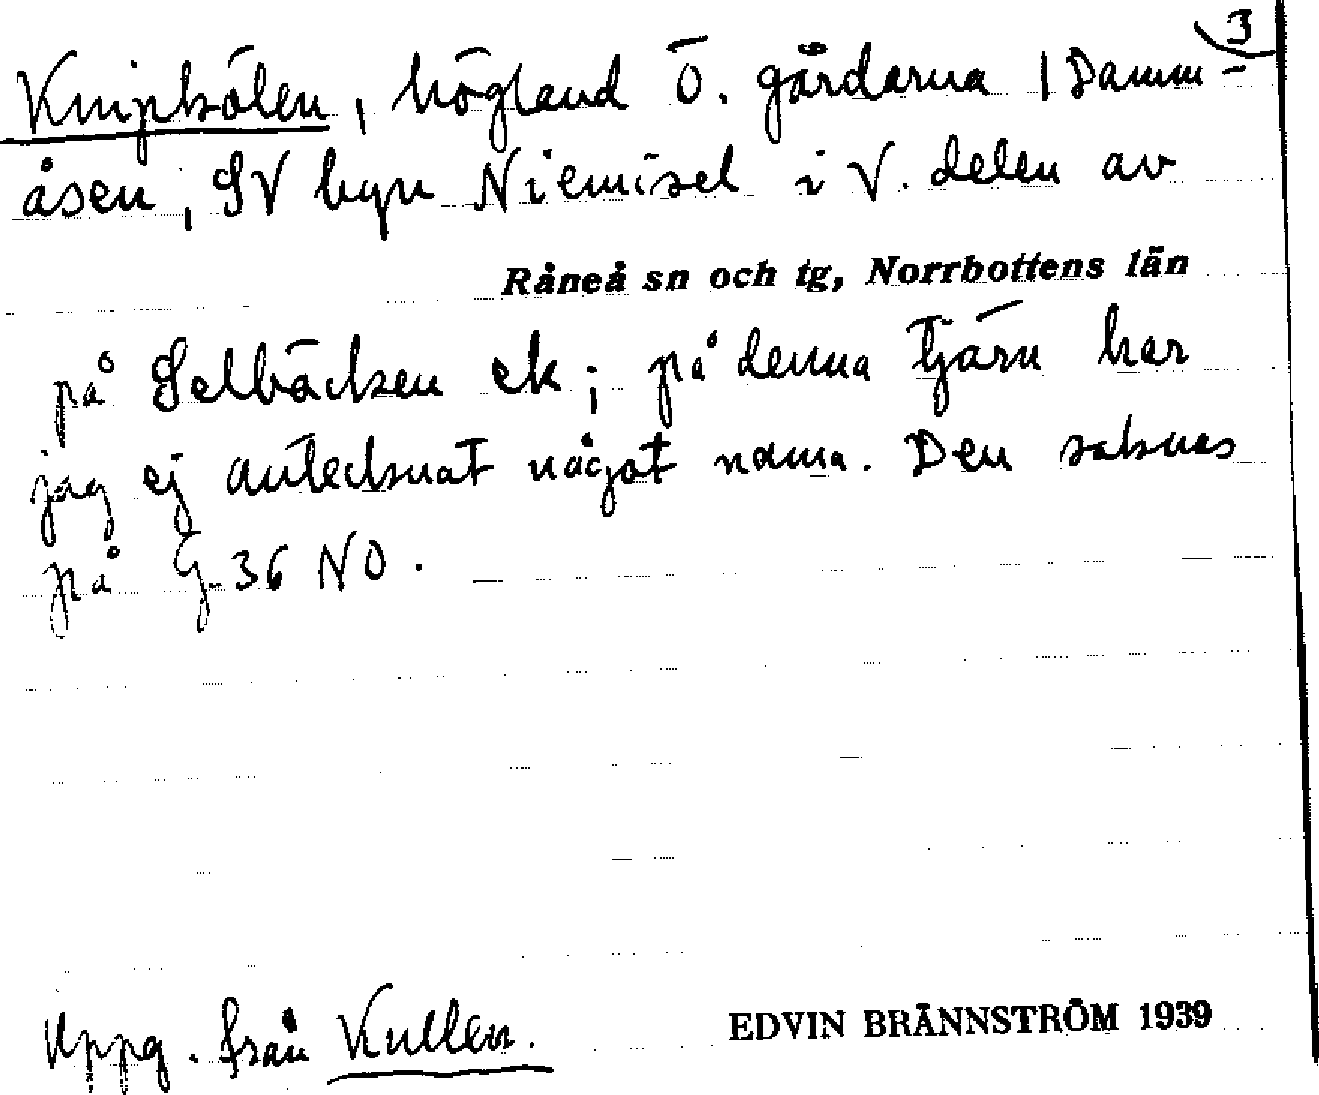 3
Knipkölen, högland Ö. gårdarna i Damm-
åsen, SV byn Niemisel i V. delen av
Råneå sn och tg, Norrbottens län
på Selbäcken ek; på denna tjärn har
jag ej antecknat något namn. Den saknas
på G. 36 NO.
Uppg. från Kullen.
EDVIN BRÄNNSTRÖM 1939